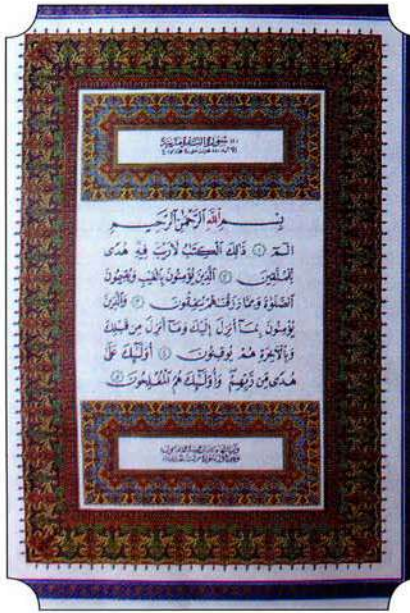 بِسْمِ اللَّهِ الرَّحْمَٰنِ الرَّحِيمِ
الٓمٓ ١ ذَٰلِكَ الْكِتَٰبُ لَا رَيْبَ فِيهِ هُدًى
لِلْمُتَّقِينَ ٢ الَّذِينَ يُؤْمِنُونَ بِالْغَيْبِ وَيُقِيمُونَ
الصَّلَوٰةَ وَمِمَّا رَزَقْنَٰهُمْ يُنْفِقُونَ ٣ وَالَّذِينَ
يُؤْمِنُونَ بِمَآ أُنْزِلَ إِلَيْكَ وَمَآ أُنْزِلَ مِنْ قَبْلِكَ
وَبِالْآخِرَةِ هُمْ يُوقِنُونَ ٤ أُولَٰٓئِكَ عَلَىٰ
هُدًى مِّن رَّبِّهِمْ وَأُولَٰٓئِكَ هُمُ الْمُفْلِحُونَ ٥